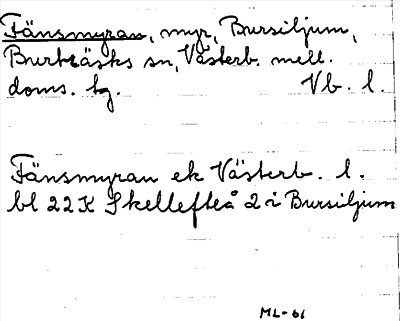 Fänsmyran, myr, Bursiljum,
Burträsks sn, Västerb. mell.
doms. tg. Vb. l.
Fänsmyran ek Västerb. l.
bl 22K Skellefteå 2 i Bursiljum
ML-61